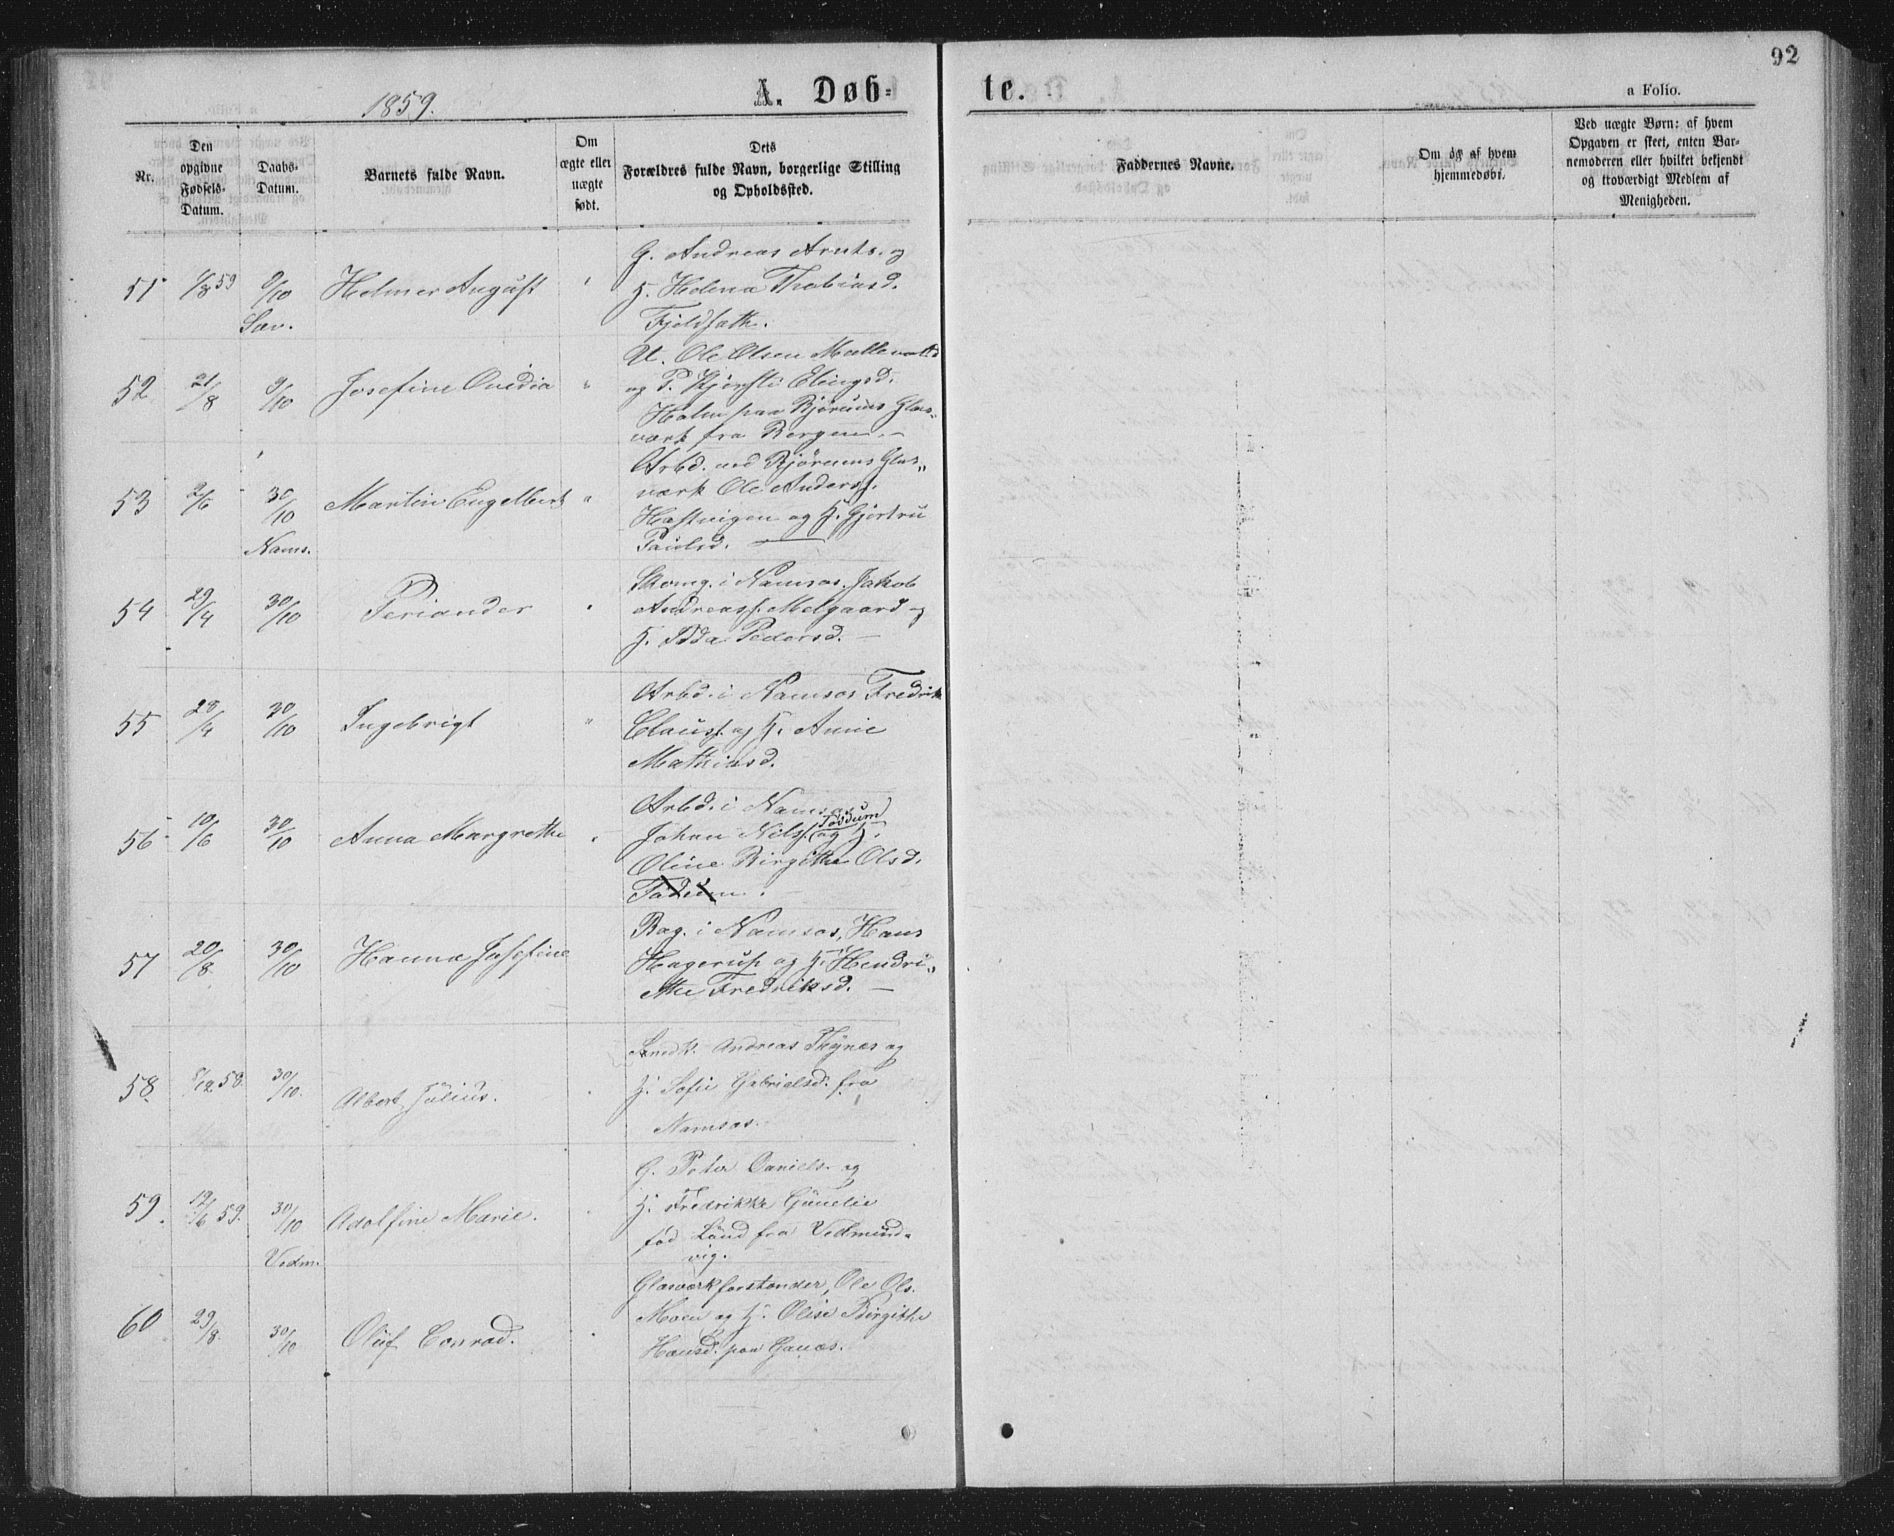 92
1859.
A. Døb-
te.
a Folio.
Nr.
Den opgivne Fødsels-Datum.
Daabs-Datum.
Barnets fulde Navn.
Om ægte eller uægte født.
Dets Forældres fulde Navn, borgerlige Stilling og Opholdssted.
Faddernes Navne.
Om og af hvem hjemmedøbt.
Ved uægte Børn: af hvem Opgaven er skeet, enten Barnemoderen eller hvilket bekjendt og troværdigt Medlem af Menigheden.
51 /8 59 9/10 Helmer August
Sæv.
G. Andreas Arnts. og
H. Helena Thobiasd.
52 21/8 9/10 Josefine Ovidia "
U. Ole Olsen
og P. Kjersti Elingsd.
Holm paa Bjørums Glas-
værk fra Bergen. -
53 2/6 30/10 Martin Engelbert "
Nams.
Arbd. ved Bjørums Glas„
værk Ole Andersf.
og H. Gjertru
Paulsd. —
54 29/4 30/10 Periander "
Skomg. i Namsos. Jakob
Andreasf. Melgaard og
H. Pedersd. —
55 28/4 30/10 Ingebrigt "
Arbd. i Namsos Fredrik
Clausf. og H. Anne
Mathiasd.
56 10/6 30/10 Anna Margrethe "
Arbd. i Namsos
Johan Nilsf. Fossum og H.
Oline Birgithe Olsd.
57 20/8 30/10 Hanna Josefine
Bag. i Namsos, Hans
Hagerup og H. Hendri„
kke Fredriksd. —
58. /12 58. 30/10. Albert Julius.
Andreas og
H. Sofie Gabrielsd. fra
Namsos.
59. 12/6 59. 30/10 Adolfine Marie.
Vedm.
G. Peter Daniels. og
H. Fredrikke
fød Lund fra Vedmund-
vig.
60 29/8. 30/10 Oluf Conrad.
Glasværkforstander, Ole Ols.
Moen og H. Olise Birgithe
Hansd. paa